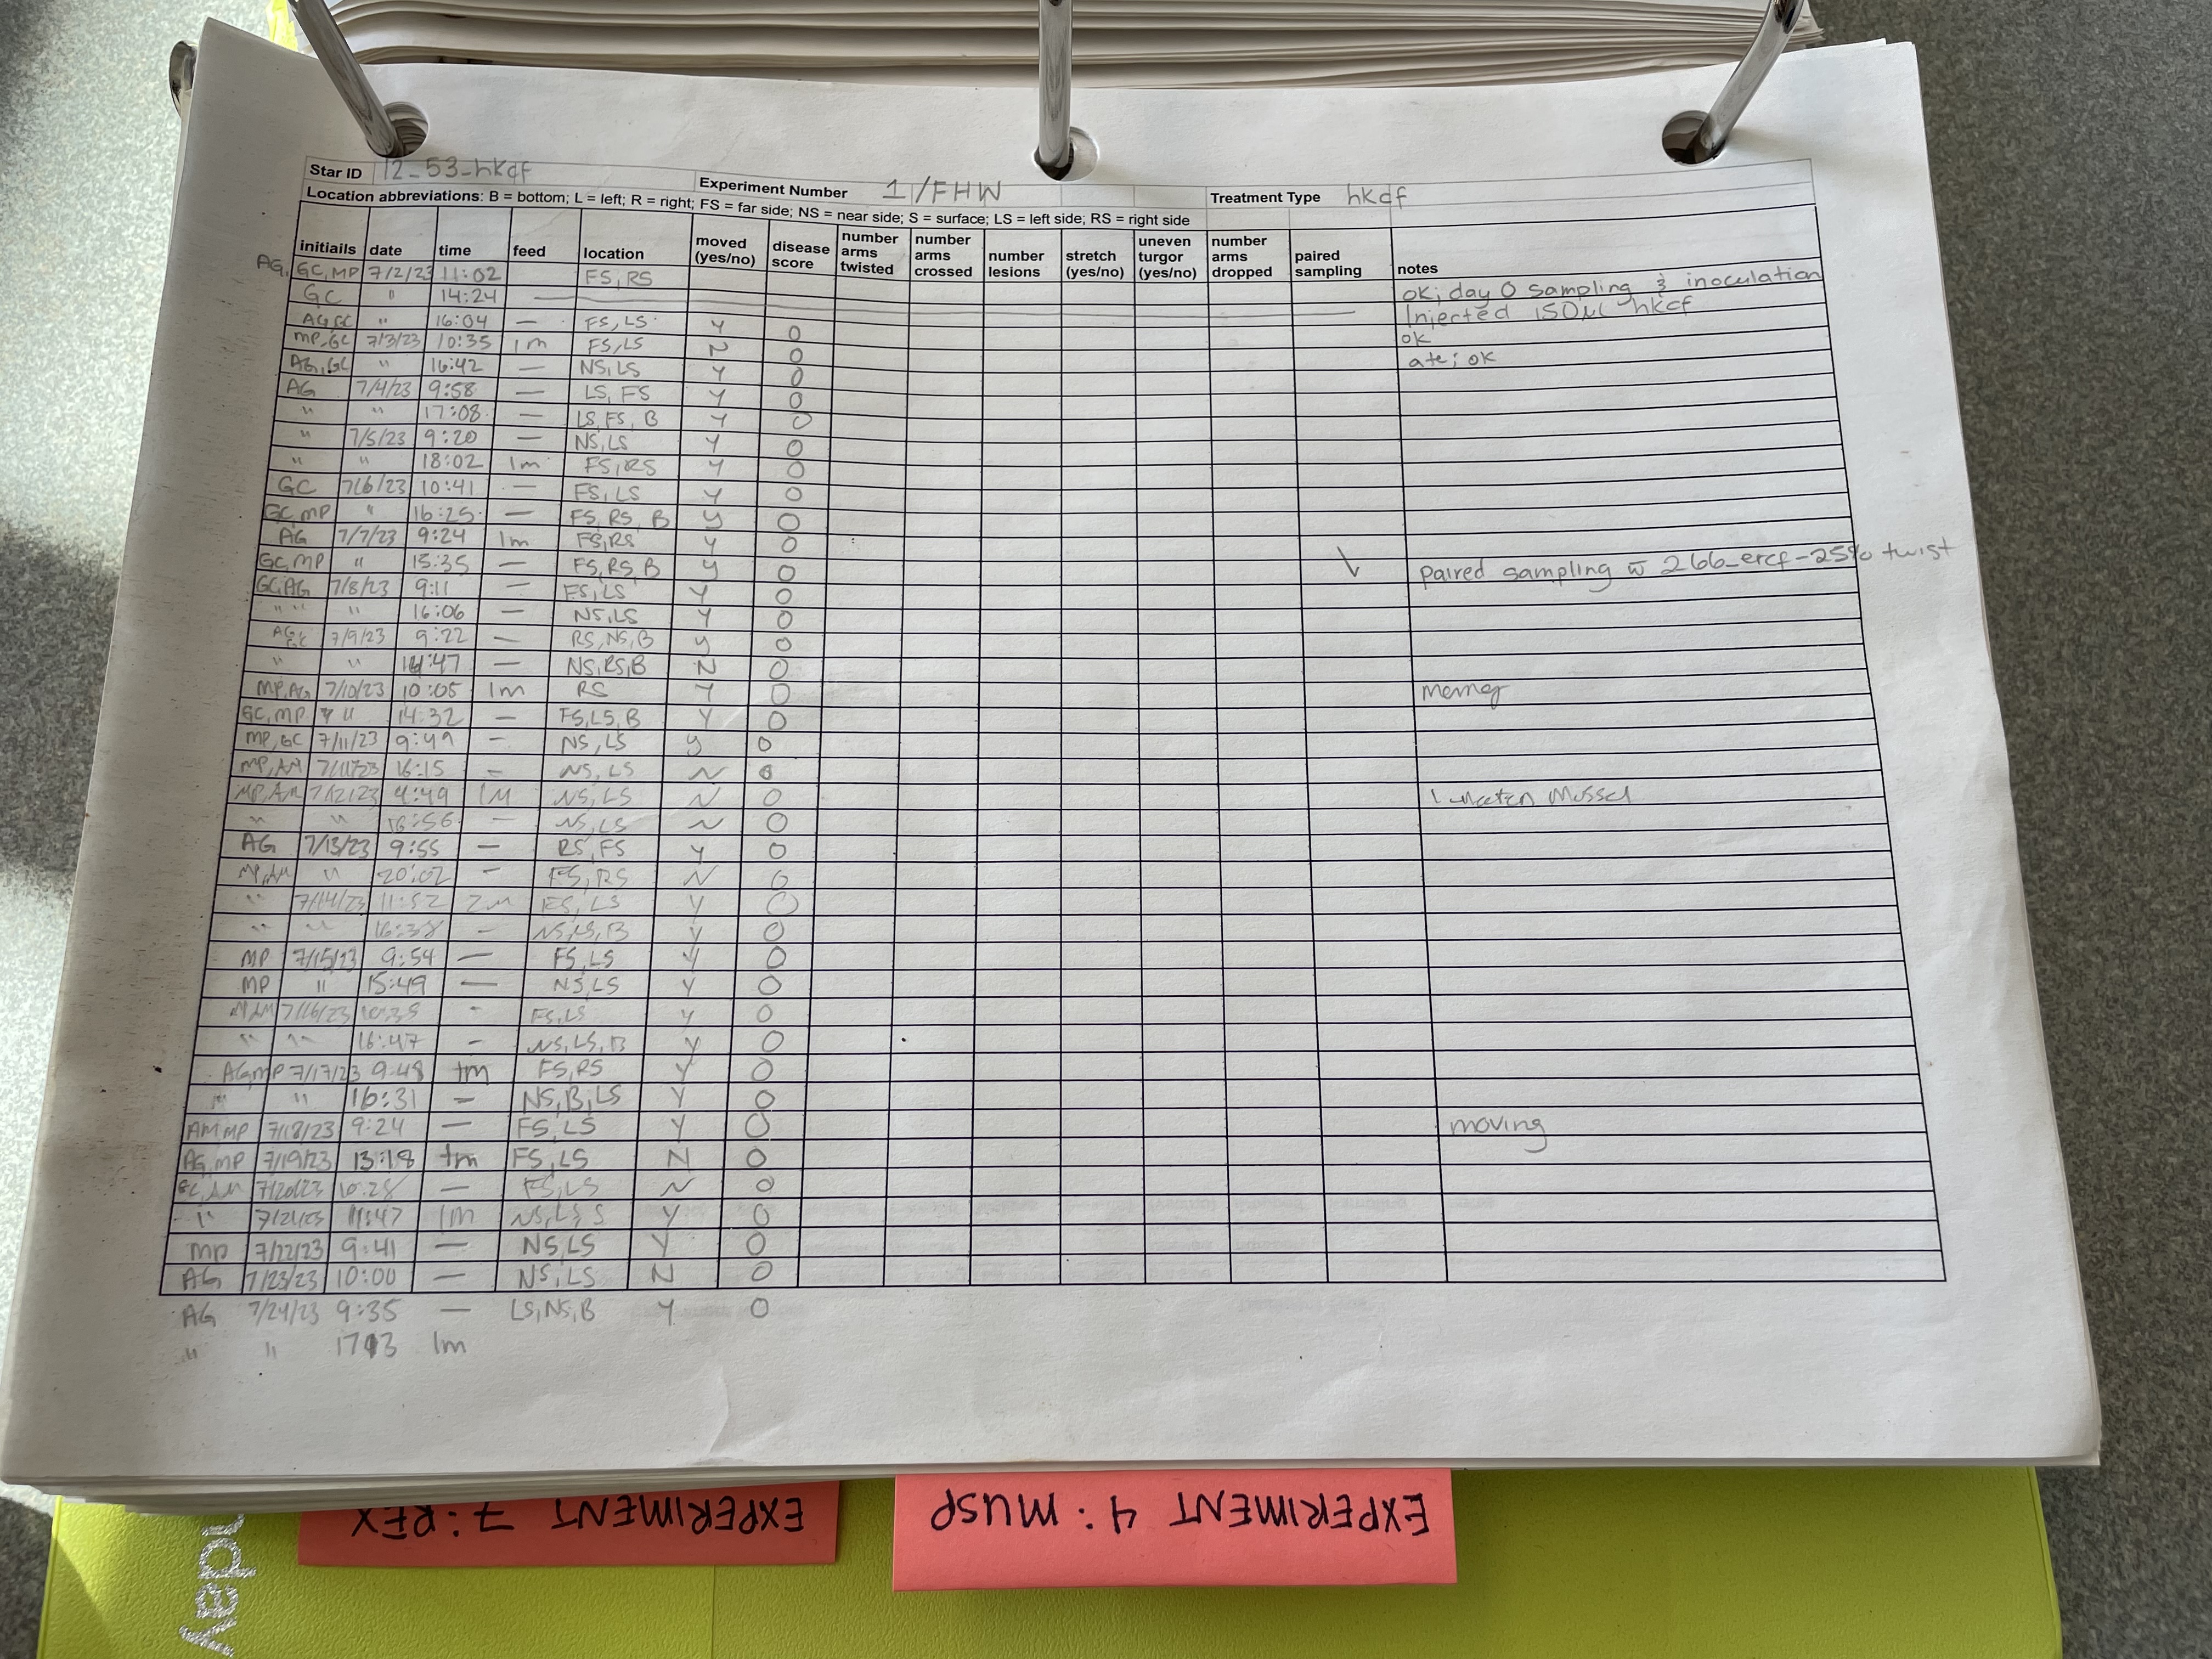 Star ID 12_53_hkcf Experiment Number 1/FHW Treatment Type hkcf
Location abbreviations: B = bottom; L = left; R = right; FS = far side; NS = near side; S = surface; LS = left side; RS = right side
initiails date time feed location moved (yes/no) disease score number arms twisted number arms crossed number lesions stretch (yes/no) uneven turgor (yes/no) number arms dropped paired sampling notes
AG, GC, MP 7/2/23 11:02 FS, RS ok; day 0 sampling & inoculation
GC " 14:24 — Injected 150µL hkcf
AG, GC " 16:04 — FS, LS Y 0 ok
MP, GC 7/3/23 10:35 1m FS, LS N 0 ate; ok
AG, GC " 16:42 — NS, LS Y 0
AG 7/4/23 9:58 — LS, FS Y 0
" " 17:08 — LS, FS, B Y 0
" 7/5/23 9:20 — NS, LS Y 0
" " 18:02 1m FS, RS Y 0
GC 7/6/23 10:41 — FS, LS Y 0
GC, MP " 16:25 — FS, RS, B y 0
AG 7/7/23 9:24 1m FS, RS Y 0
GC, MP " 15:35 — FS, RS, B y 0 paired sampling w̄ 266_ercf-25% twist
GC, AG 7/8/23 9:11 — FS, LS Y 0
" " " 16:06 — NS, LS Y 0
AG, GC 7/9/23 9:22 — RS, NS, B y 0
" " :47 — NS, RS, B N 0
MP, AG 7/10/23 10:05 1m RS Y 0
GC, MP " 14:32 — FS, LS, B Y 0
MP, GC 7/11/23 9:49 — NS, LS y 0
MP, AM 7/11/23 16:15 — NS, LS N 0
MP, AM 7/12/23 :49 1M NS, LS N 0 1 uneaten mussel
" " :56 — NS, LS N 0
AG 7/13/23 9:55 — RS, FS Y 0
MP, AM " 20:02 — FS, RS N 0
" 7/14/23 11:52 2m FS, LS Y 0
" " 16:38 — NS, LS, B Y 0
MP 7/15/23 9:54 — FS, LS Y 0
MP " 15:49 — NS, LS Y 0
7/16/23 10:35 - FS, LS Y 0
" " 16:47 — NS, LS, B Y 0
AG, MP 7/17/23 9:48 1m FS, RS Y 0
" " 16:31 — NS, B, LS Y 0
AM, MP 7/18/23 9:24 — FS, LS Y 0 moving
AG, MP 7/19/23 13:18 1m FS, LS N 0
GC, AM 7/20/23 10:28 — FS, LS N 0
" 7/21/23 11:47 1m NS, LS, S Y 0
MP 7/22/23 9:41 — NS, LS Y 0
AG 7/23/23 10:00 — NS, LS N 0
AG 7/24/23 9:35 — LS, NS, B Y 0
" " 1713 1m
EXPERIMENT 7: REX
EXPERIMENT 4: MUSP